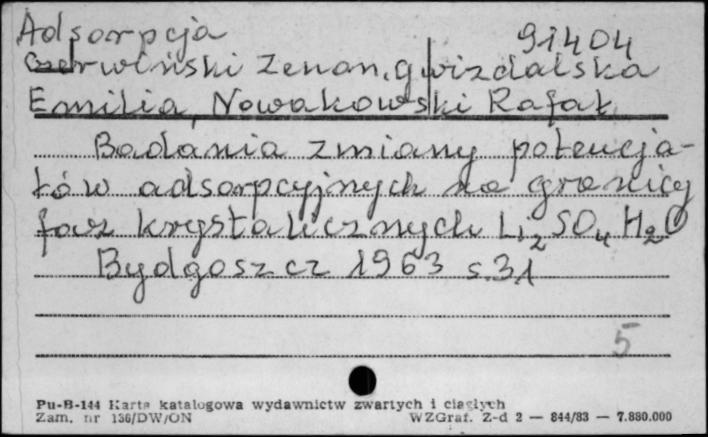 Adsorpcja 91404
Czerwiński Zenon, Gwizdalska
Emilia, Nowakowski Rafał
Badania zmiany potencja-
łów adsorpcyjnych na granicy
faz krystalicznych Li2SO4 H2O
Bydgoszcz 1963 s.31
5
Pu-B-144 Karta katalogowa wydawnictw zwartych i ciągłych
Zam. nr 136/DW/ON WZGraf. Z-d 2 — 844/83 — 7.880.000